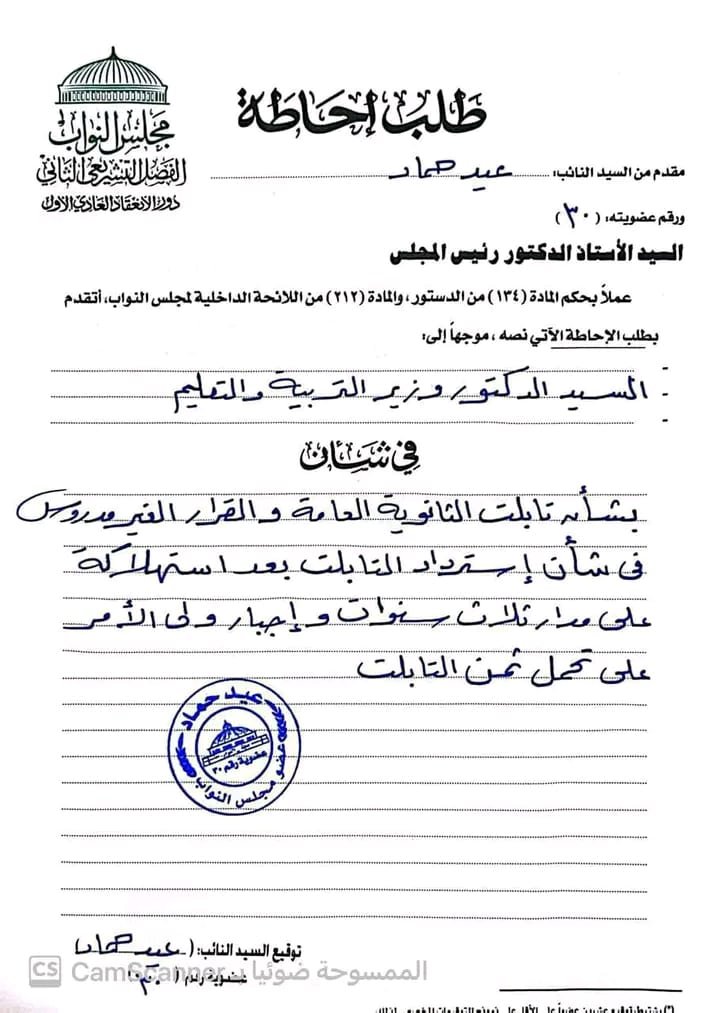 طلب إحاطة
مجلس النواب
الفصل التشريعى الثانى
دور الانعقاد العادى الأول
مقدم من السيد النائب: عيد حماد
ورقم عضويته: (٣٠)
السيد الأستاذ الدكتور رئيس المجلس
عملاً بحكم المادة (١٣٤) من الدستور، والمادة (٢١٢) من اللائحة الداخلية لمجلس النواب، أتقدم
بطلب الإحاطة الآتي نصه، موجهاً إلى:
السيد الدكتور وزير التربية والتعليم
في شأن
بشأن تابلت الثانوية العامة والقرار الغير مدروس
فى شأن إسترداد التابلت بعد استهلاكة
على مدار ثلاث سنوات وإجبار ولى الأمر
على تحمل ثمن التابلت
عيد حماد
عضوية رقم ٣٠
عضو مجلس النواب
توقيع السيد النائب: (عيد حماد)
عضوية رقم (٣٠)
CS الممسوحة ضوئيا بـ CamScanner